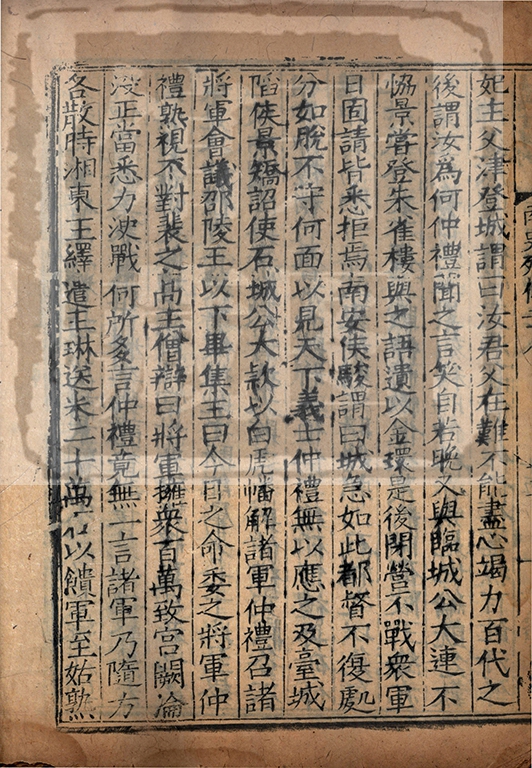 妃主父津登城謂曰汝君父在難不能盡心竭力百代之
後謂汝為何仲禮聞之言笑自若晩又與臨城公大連不
恊景甞登朱雀樓與之語遺以金環是後閉營不戰衆軍
日固請皆悉拒焉南安侯駿謂曰城急如此都督不復處
分如脫不守何面以見天下義士仲禮無以應之及臺城
陷侯景矯詔使石城公大欵以白虎幡解諸軍仲禮召諸
將軍會議邵陵王以下畢集王曰今日之命委之將軍仲
禮熟視不對裴之髙王僧辯曰將軍擁衆百萬致宫闕淪
没正當悉力决戰何所多言仲禮竟無一言諸軍乃隨方
各散時湘東王繹遣王琳送米二十萬石以饋軍至姑熟